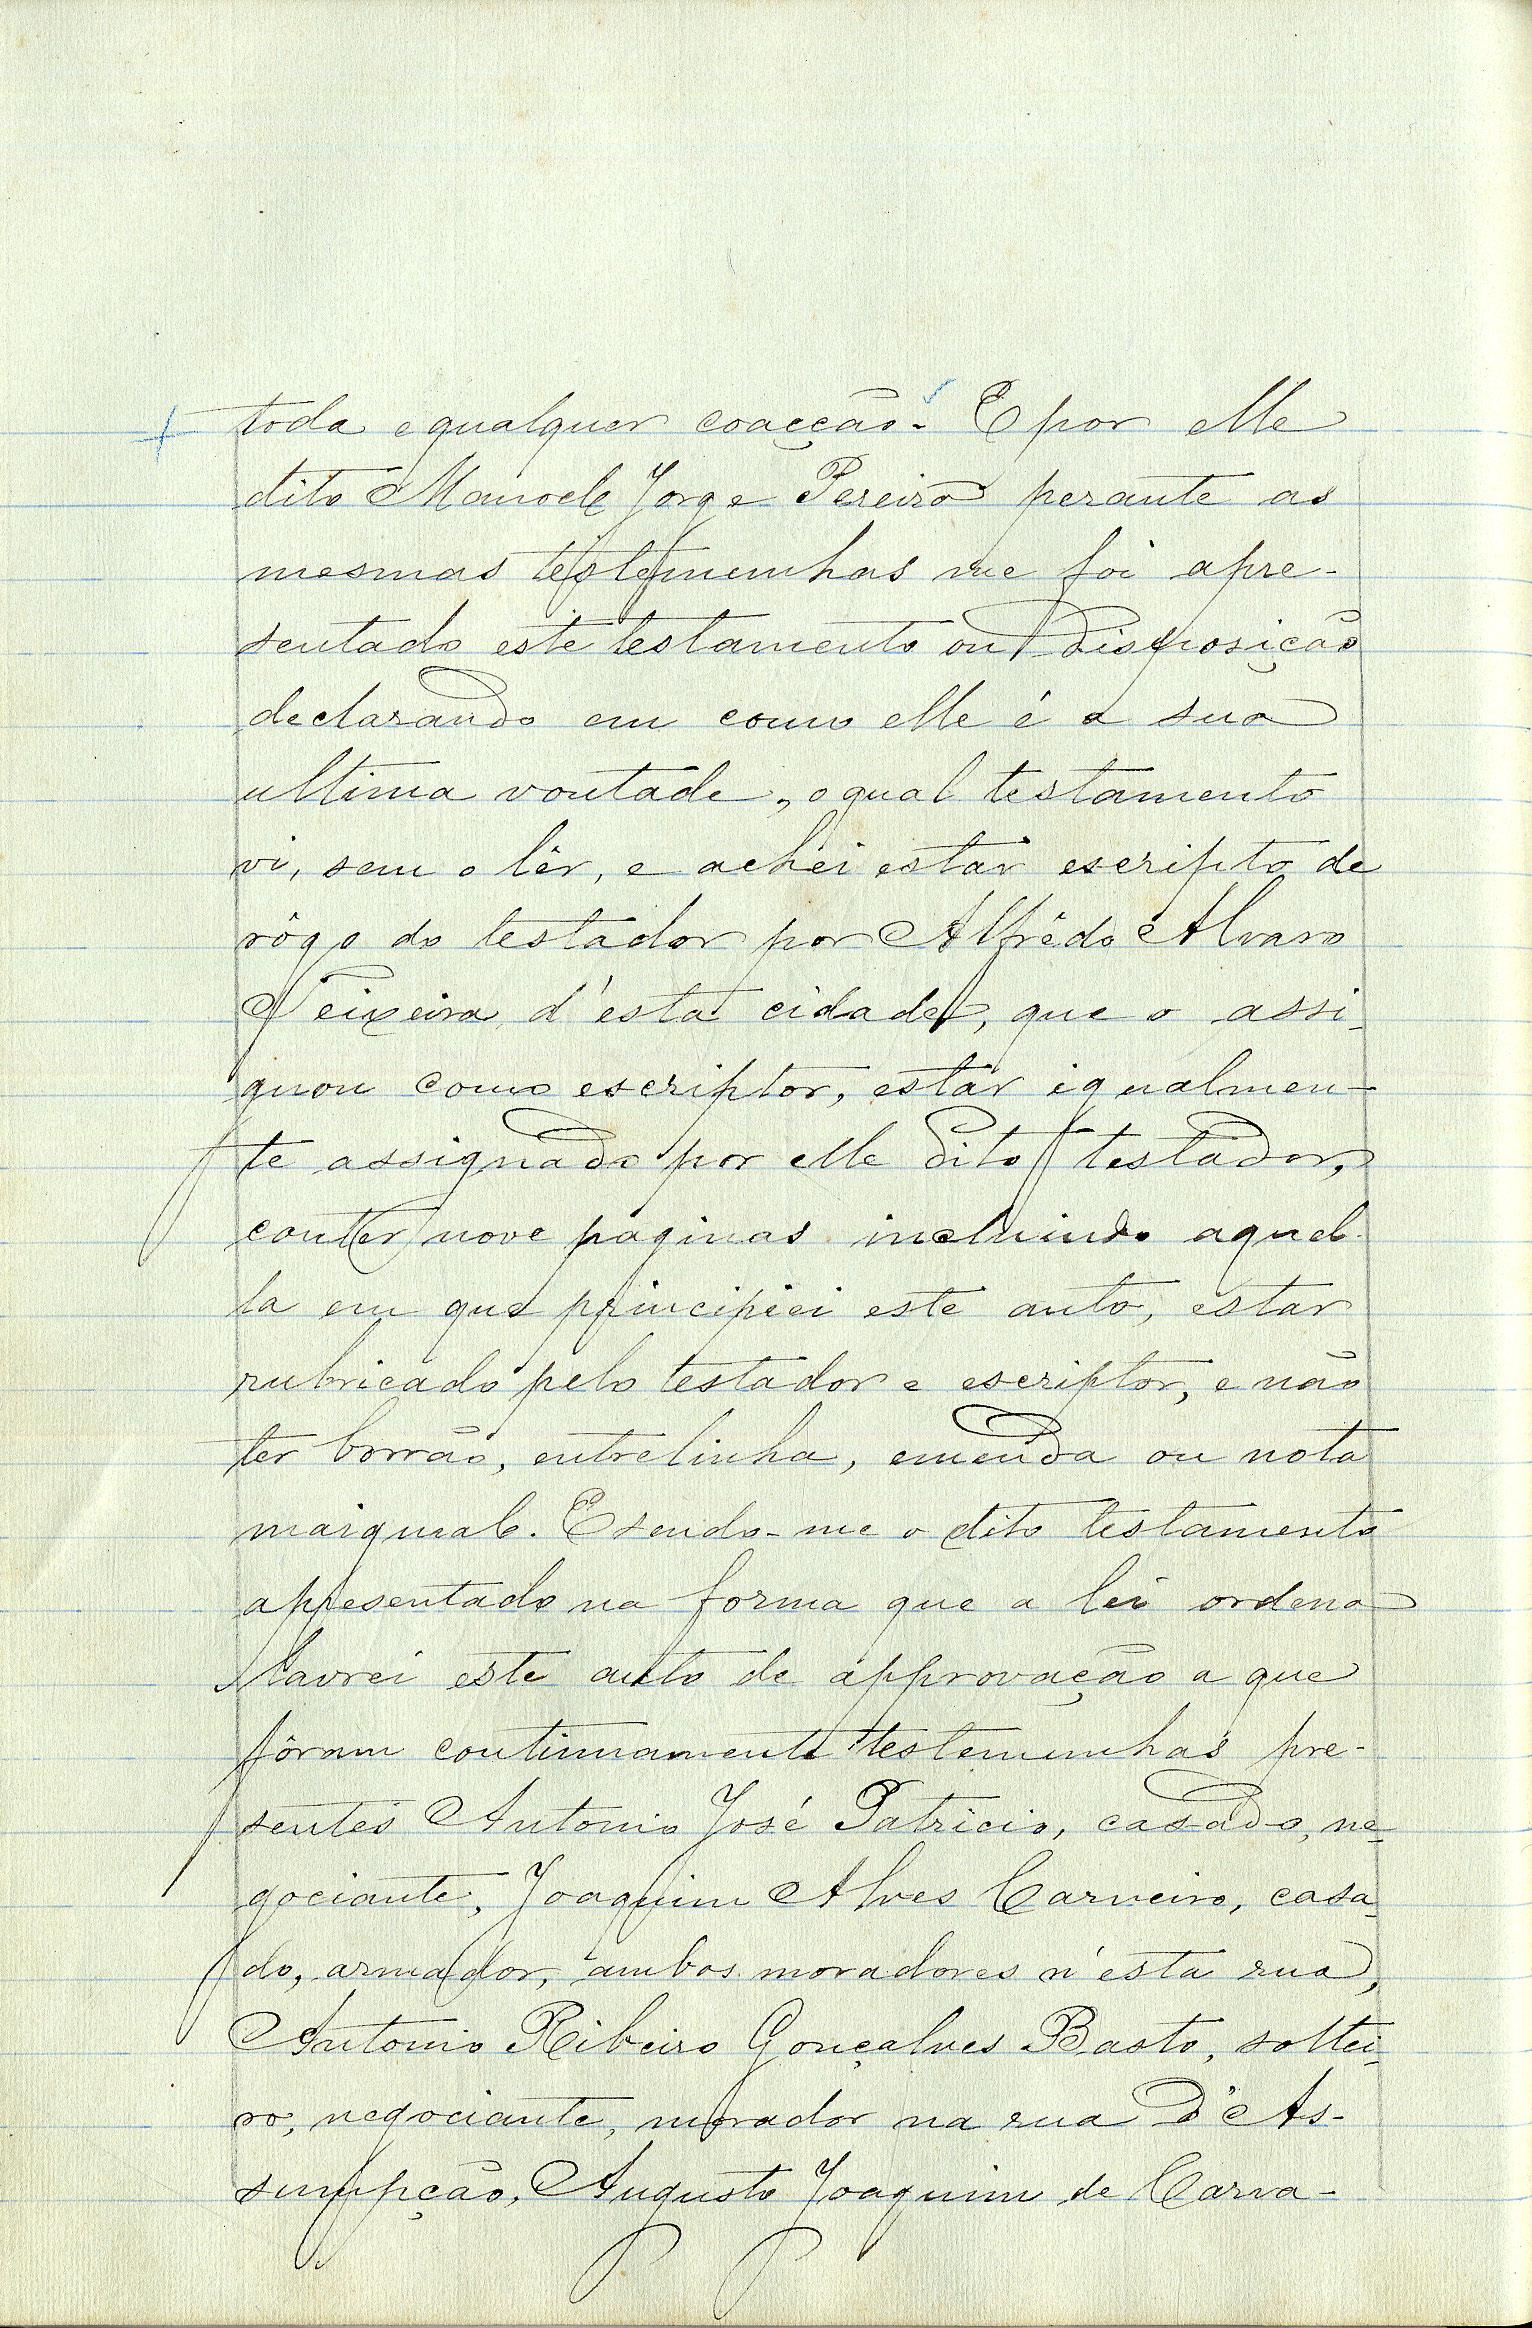 toda e qualquer coacção. E por elle
dito Manoel Jorge Pereira perante as
mesmas testemunhas me foi apre-
sentado este testamento ou disposição
declarando em como elle é a sua
ultima vontade, o qual testamento
vi, sem o lêr, e achei estar escripto de
rôgo do testador por Alfrêdo Alvaro
Teixeira, d'esta cidade, que o assi-
gnou como escriptor, estar igualmen-
te assignado por elle dito testador,
conter nove paginas incluindo aquel-
la em que principiei este auto, estar
rubricado pelo testador e escriptor, e não
ter borrão, entrelinha, emenda ou nota
marginal. E sendo-me o dito testamento
apresentado na forma que a lei ordena
lavrei este auto de approvação a que
fôram continuamente testemunhas pre-
sentes Antonio José Patricio, casado, ne-
gociante, Joaquim Alves Carneiro, casa-
do, armador, ambos moradores n'esta rua,
Antonio Ribeiro Gonçalves Basto, soltei-
ro, negociante, morador na rua d'As-
sumpção, Augusto Joaquim de Carva-